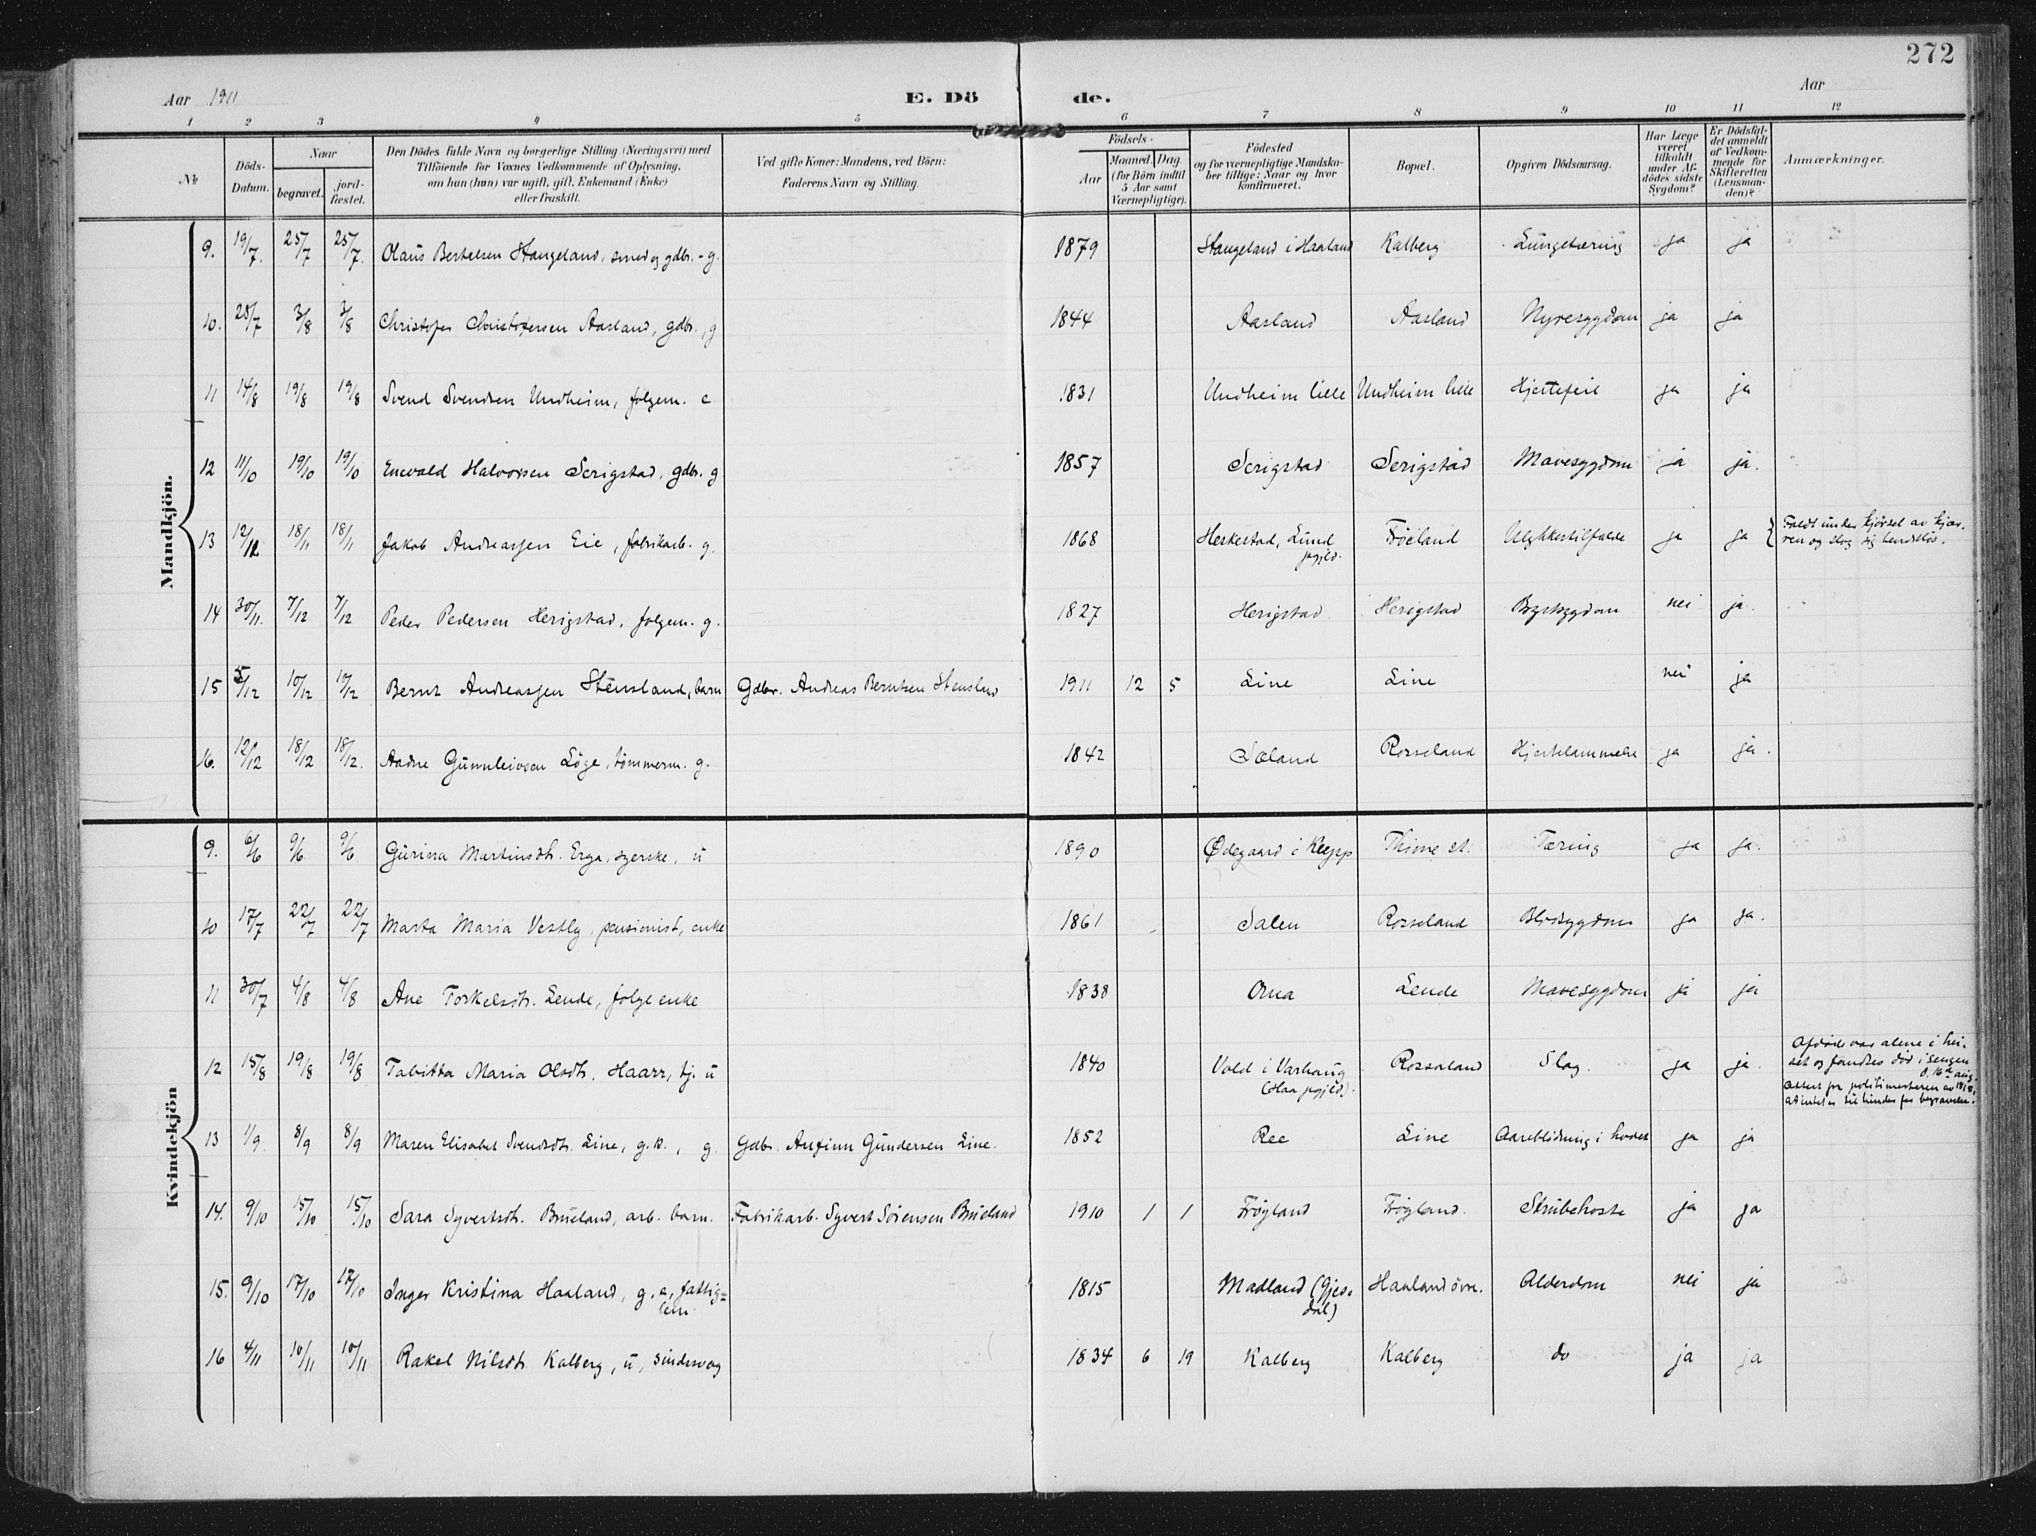 272
Aar 1911
E. Dö de.
Aar
1 2 3 4 5 6 7 8 9 10 11 12
No
Döds-Datum.
Naar
begravet.
jord-fæstet.
Den Dödes fulde Navn og borgerlige Stilling (Næringsvei) med
Tilföiende for Voxnes Vedkommende af Oplysning,
om han (hun) var ugift, gift, Enkemand (Enke)
eller fraskilt.
Ved gifte Koner: Mandens, ved Börn:
Faderens Navn og Stilling.
Födsels-
Aar
Maaned. Dag.
(for Börn indtil
5 Aar samt
Værnepligtige).
Födested
og for værnepligtige Mandska-
ber tillige: Naar og hvor
konfirmeret.
Bopæl.
Opgiven Dödsaarsag.
Har Læge
været
tilkaldt
under Af-
dödes sidste
Sygdom?
Er Dödsfal-
det anmeldt
af Vedkom-
mende for
Skifteretten
(Lensman-
den)?
Anmærkninger.
Mandkjön.
9. 19/7. 25/7 25/7. Olaus Bertelsen Stangeland, smed og gdbr. - g. 1879 Stangeland i Haaland Kalberg Lungetæring ja ja
10. 28/7 3/8 3/8 Christofer Christofersen Aasland, gdbr., g 1844 Aasland Aasland Nyresygdom ja ja
11 14/8 19/8 19/8 Svend Svendsen Undheim, folgem. e 1831 Undheim lille Undheim lille Hjertefeil ja ja
12 11/10 19/10 19/10 Enevald Halvorsen Serigstad, gdbr. g 1857 Serigstad Serigstad Mavesygdom ja ja.
13 12/11 18/11 18/11 Jakob Andreassen Eie, fabrikarb. g. 1868 Heskestad, Lund pgjeld. Frøiland Ulykkestilfælde ja ja
Faldt under kjørsel av kjær-
ren og slog sig
14 30/11. 7/12 7/12 Peder Pedersen Herigstad, folgem. g. 1827 Herigstad Herigstad Brystsygdom nei ja.
15 5/12 10/12 10/12 Bernt Andreassen Stensland, barn Gdbr. Andreas Berntsen Stensland 1911 12 5 Line Line nei ja
16. 12/12 18/12 18/12. Aadne Gunnleivsen Löge, tömmerm. g. 1842 Sæland Rosseland Hjertelammelse ja ja.
Kvindekjön
9. 6/6 9/6 9/6 Gurina Martinsdtr. Erga, syerske, u 1890 Ødegaard i Klepp Thime st. Tæring ja ja.
10 17/7 22/7 22/7 Marta Maria Vestly, pensionist, enke 1861 Salen Rosseland Blodsygdom ja ja.
11 30/7 4/8 4/8 Ane Torkelsdtr. Lende, folge enke 1838 Orua Lende Mavesygdom ja ja
12 15/8 19/8 19/8 Tabitta Maria Olsdtr. Haarr, tj. u 1840 Vold i Varhaug (Haa pgjeld.) Rosseland Slag. ja ja.
Afdøde var alene i hu-
set og fandtes død i sengen
d. 16de aug.
Attest fra politimesteren av 18/8
at intet er til hinder for begravelse.
13 1/9. 8/9 8/9 Maren Elisabet Svendsdtr. Line, g.k., g. Gdbr. Anfinn Gundersen Line. 1852 Ree Line Aareblödning i hodet ja ja
14. 9/10 15/10 15/10 Sara Syvertsdtr. Bueland, arb. barn. Fabrikarb. Syvert Sörensen Bueland 1910 1 1 Frøyland Frøyland. Strubehoste ja ja
15. 9/10 17/10 17/10 Inger Kristina Haaland, g. e, fattig=
lem 1815 Madland (Gjes-
dal) Haaland övr. Alderdom nei ja
16 4/11 10/11 10/11 Rakel Nilsdtr. Kalberg, u, sindssvag 1834 6 19 Kalberg Kalberg do ja ja